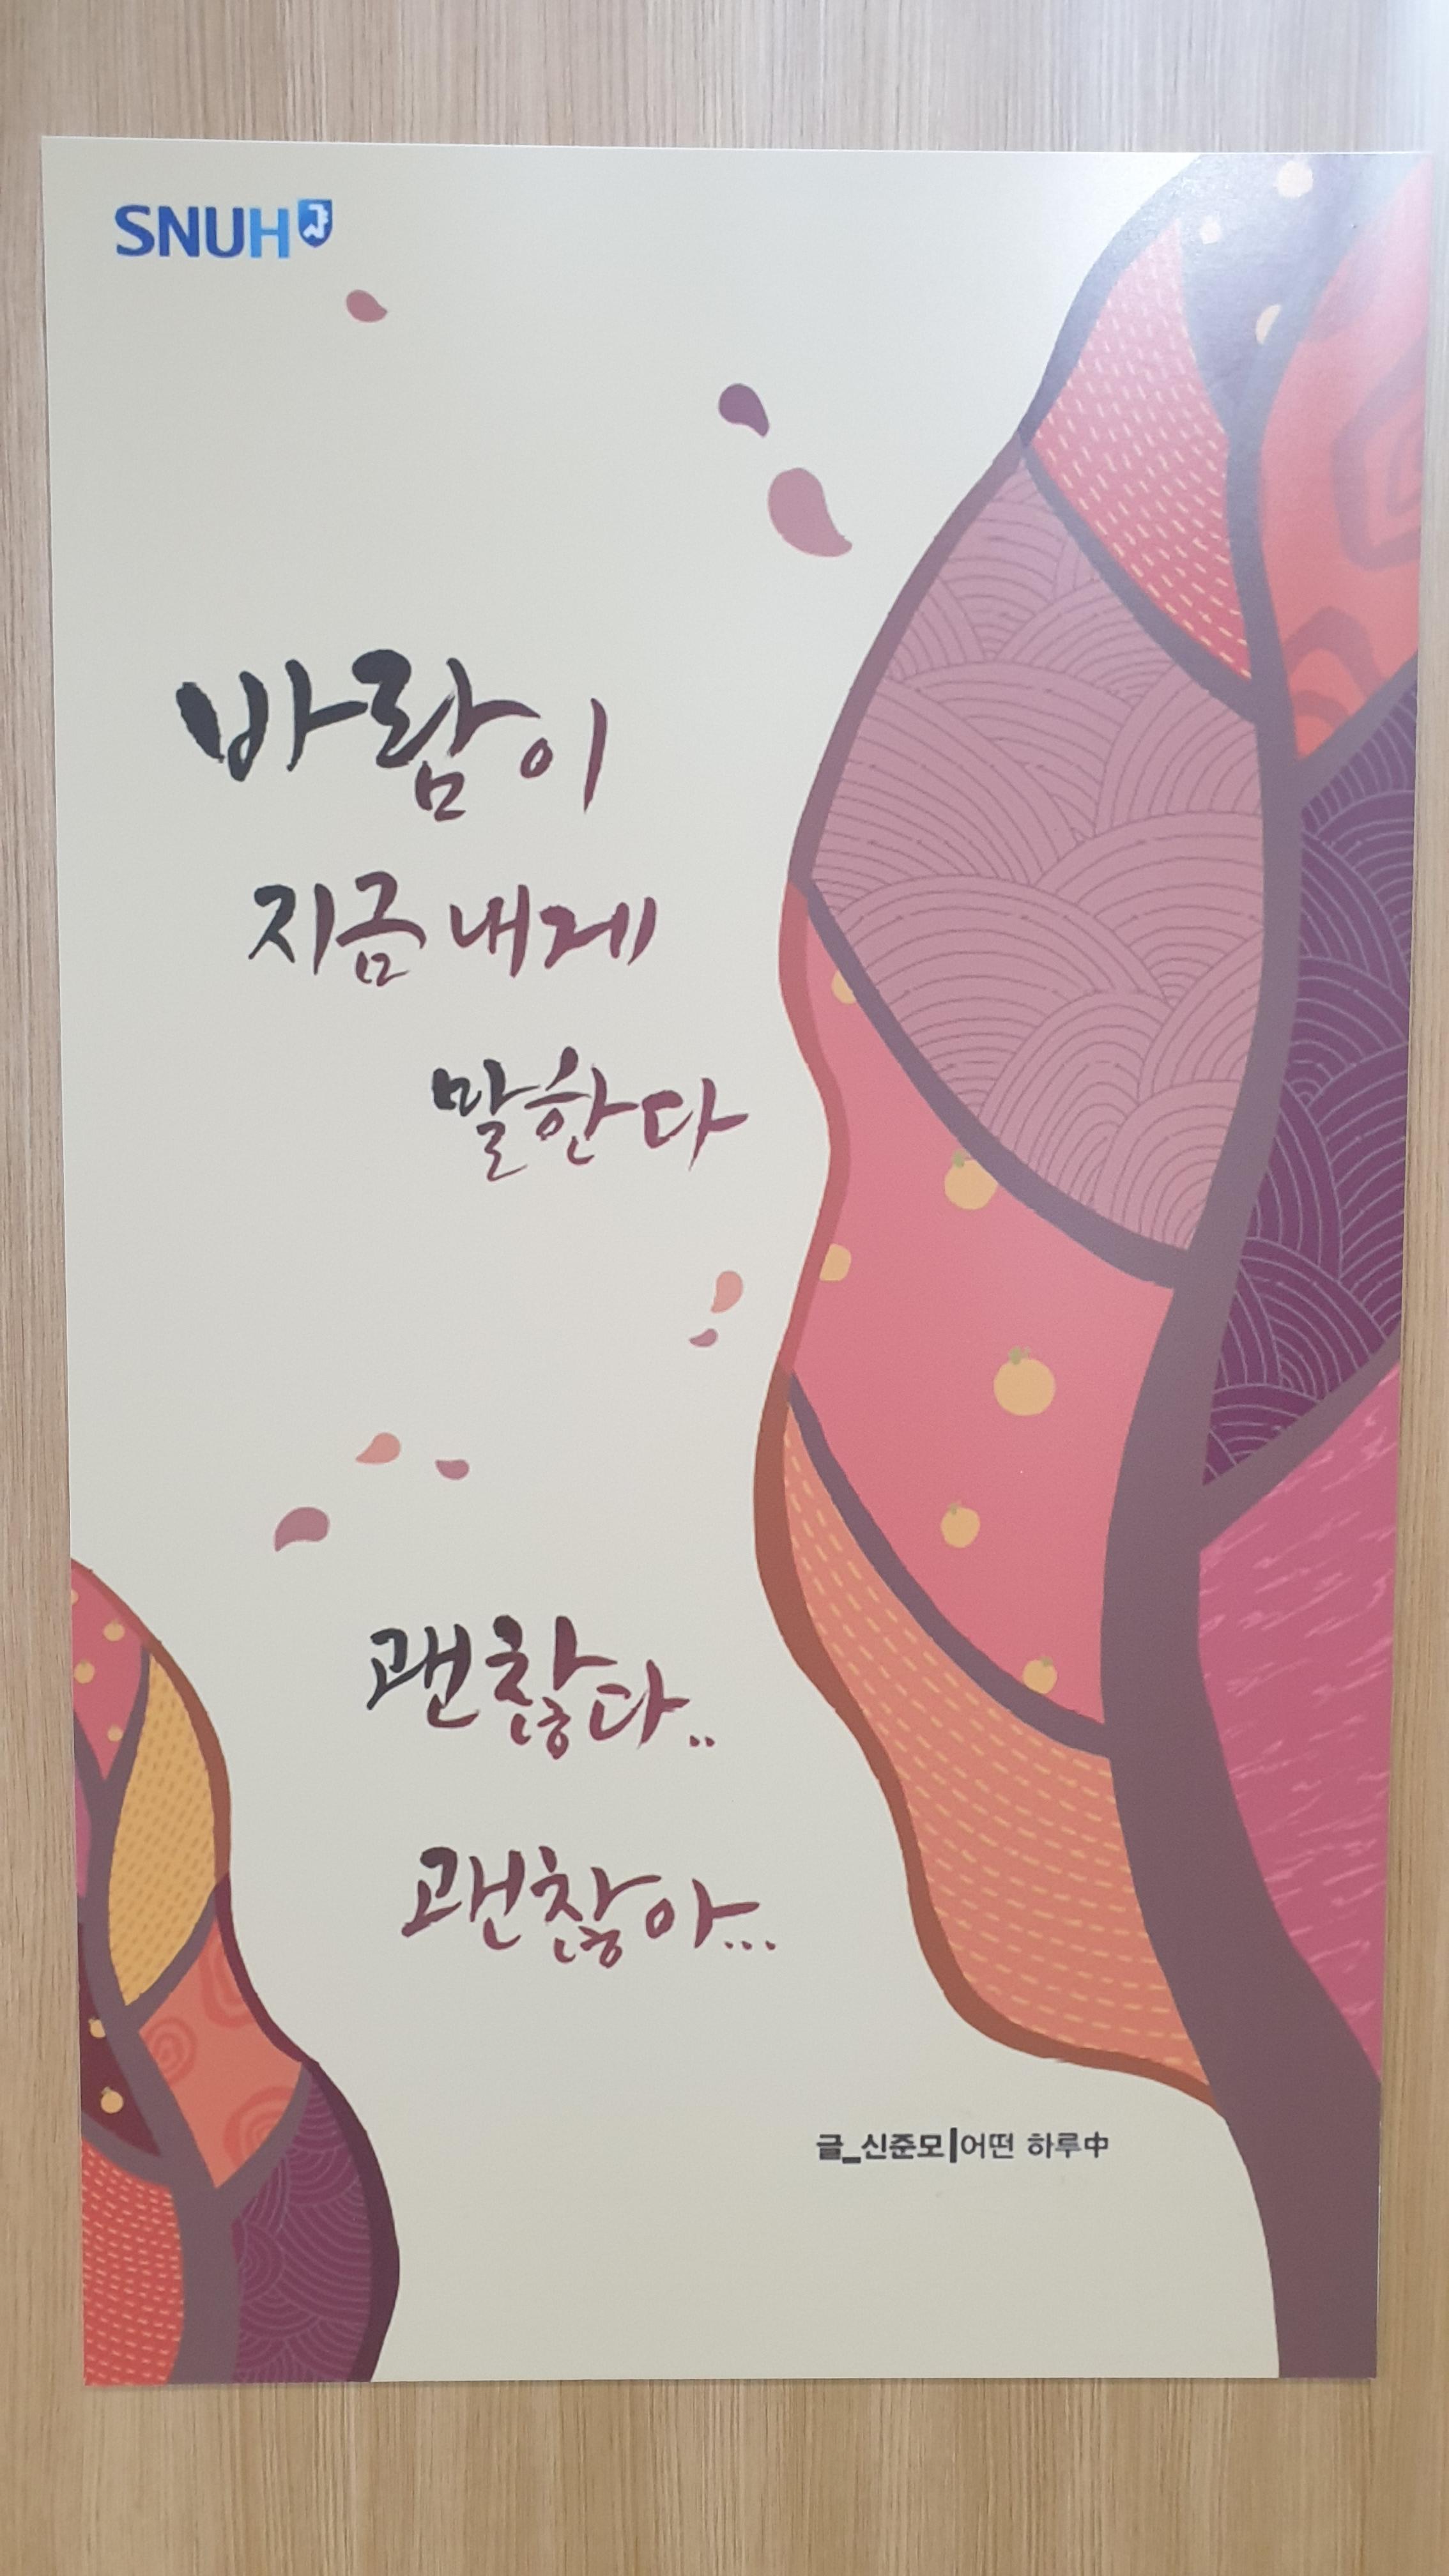 SNUH
바람이
지금 내게
말한다
괜찮다..
괜찮아...
글_신준모|어떤 하루中